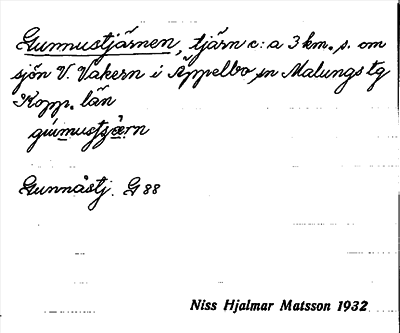 Gunnustjärnen, tjärn c:a 3 km. s. om
sjön V. Vakern i Äppelbo sn Malungs tg
Kopp. län
Gunnåstj. G 88
Niss Hjalmar Matsson 1932